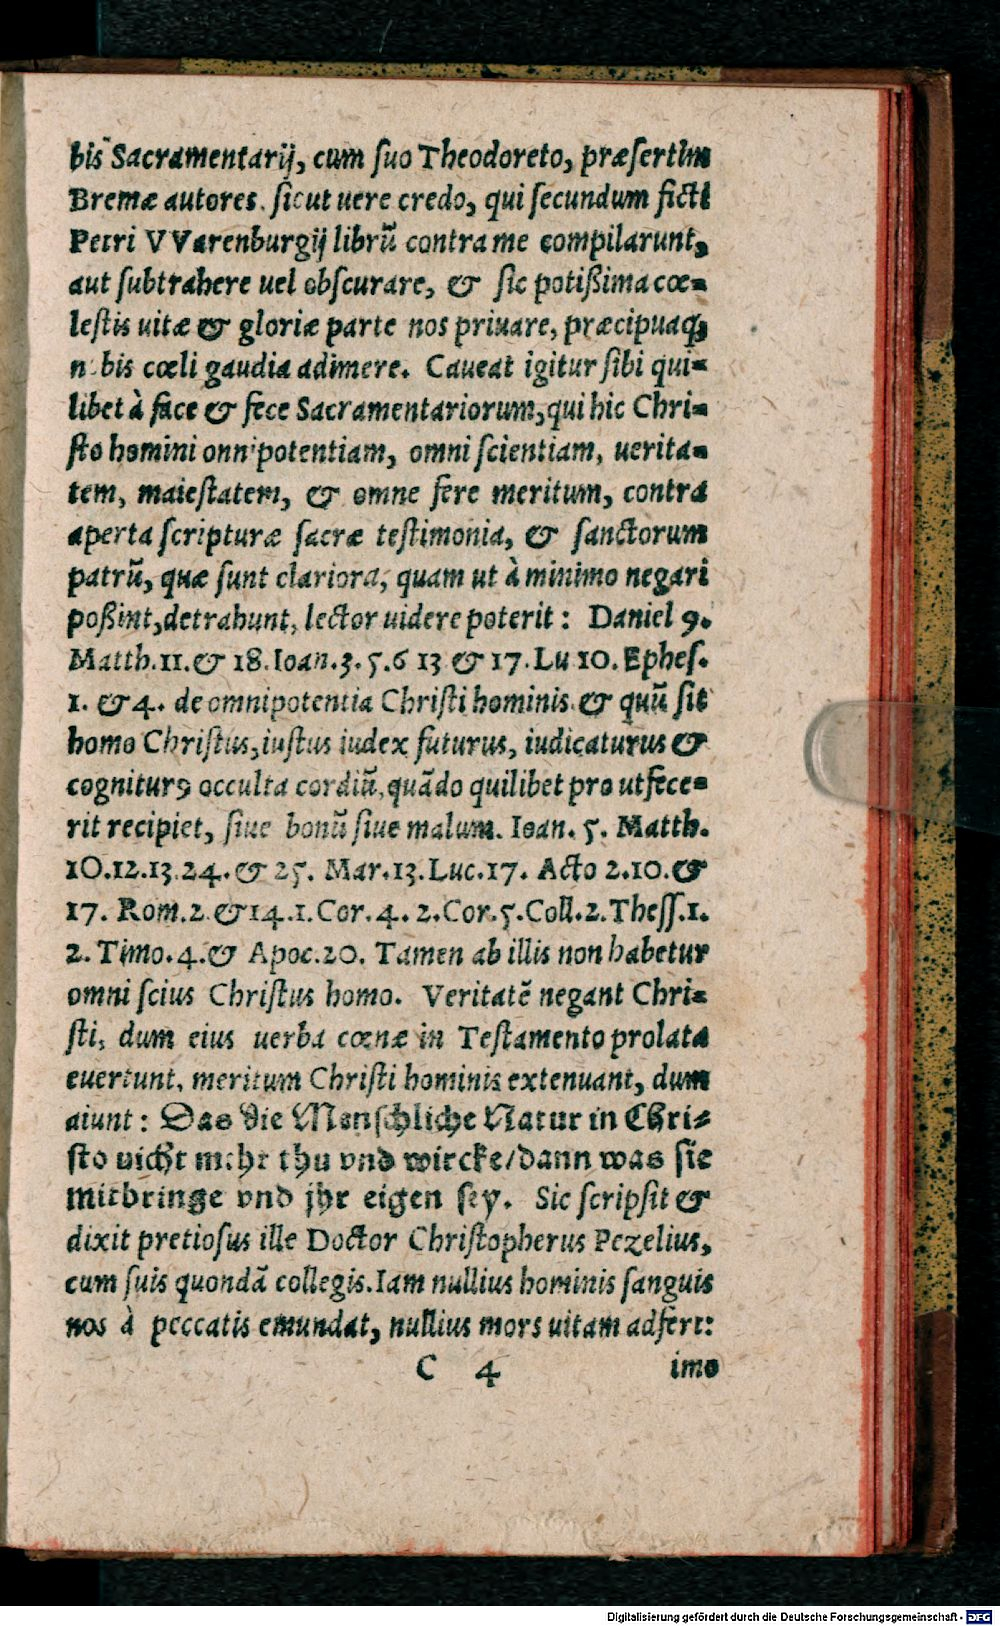 bis Sacramentarij, cum ſuo Theodoreto, præſertim
Bremæ autores. ſicut uere credo, qui ſecundum ficti
Petri VVarenburgij librũ contra me compilarunt,
aut ſubtrahere uel obſcurare, & ſic potißima cœ=
leſtis uitæ & gloriæ parte nos priuare, præcipuaq́;
n bis cœli gaudia adimere. Caueat igitur ſibi qui=
libet à face & fece Sacramentariorum, qui hic Chri=
ſto homini omnipotentiam, omni ſcientiam, uerita=
tem, maieſtatem, & omne fere meritum, contra
aperta ſcripturæ ſacræ teſtimonia, & ſanctorum
patrũ, quæ ſunt clariora, quam ut à minimo negari
poßint, detrahunt, lector uidere poterit: Daniel 9.
Matth.11.& 18.Ioan.3.5.6 13 & 17.Lu 10.Epheſ.
1. & 4. de omnipotentia Chriſti hominis.& quũ ſit
homo Chriſtus, iuſtus iudex futurus, iudicaturus &
cogniturꝰ occulta cordiũ, quãdo quilibet pro ut fece=
rit recipiet, ſiue bonũ ſiue malum. Ioan. 5. Matth.
10.12.13 24.& 25. Mar.13.Luc.17. Acto 2.10.&
17. Rom.2 &14.1.Cor.4. 2.Cor.5.Coll.2.Theſſ.1.
2. Timo.4.& Apoc.20. Tamen ab illis non habetur
omni ſcius Chriſtus homo. Veritatẽ negant Chri=
ſti, dum eius uerba cœnæ in Teſtamento prolata
euertunt, meritum Chriſti hominis extenuant, dum
aiunt: Das die Menſchliche Natur in Chri⸗
ſto nicht mehr thu vnd wircke/dann was ſie
mitbringe vnd jhr eigen ſey. Sic ſcripſit &
dixit pretioſus ille Doctor Chriſtopherus Pezelius,
cum ſuis quondã collegis.Iam nullius hominis ſanguis
nos à peccatis emundat, nullius mors uitam adfert:
C 4 imo
Digitalisierung gefördert durch die Deutsche Forschungsgemeinschaft - DFG